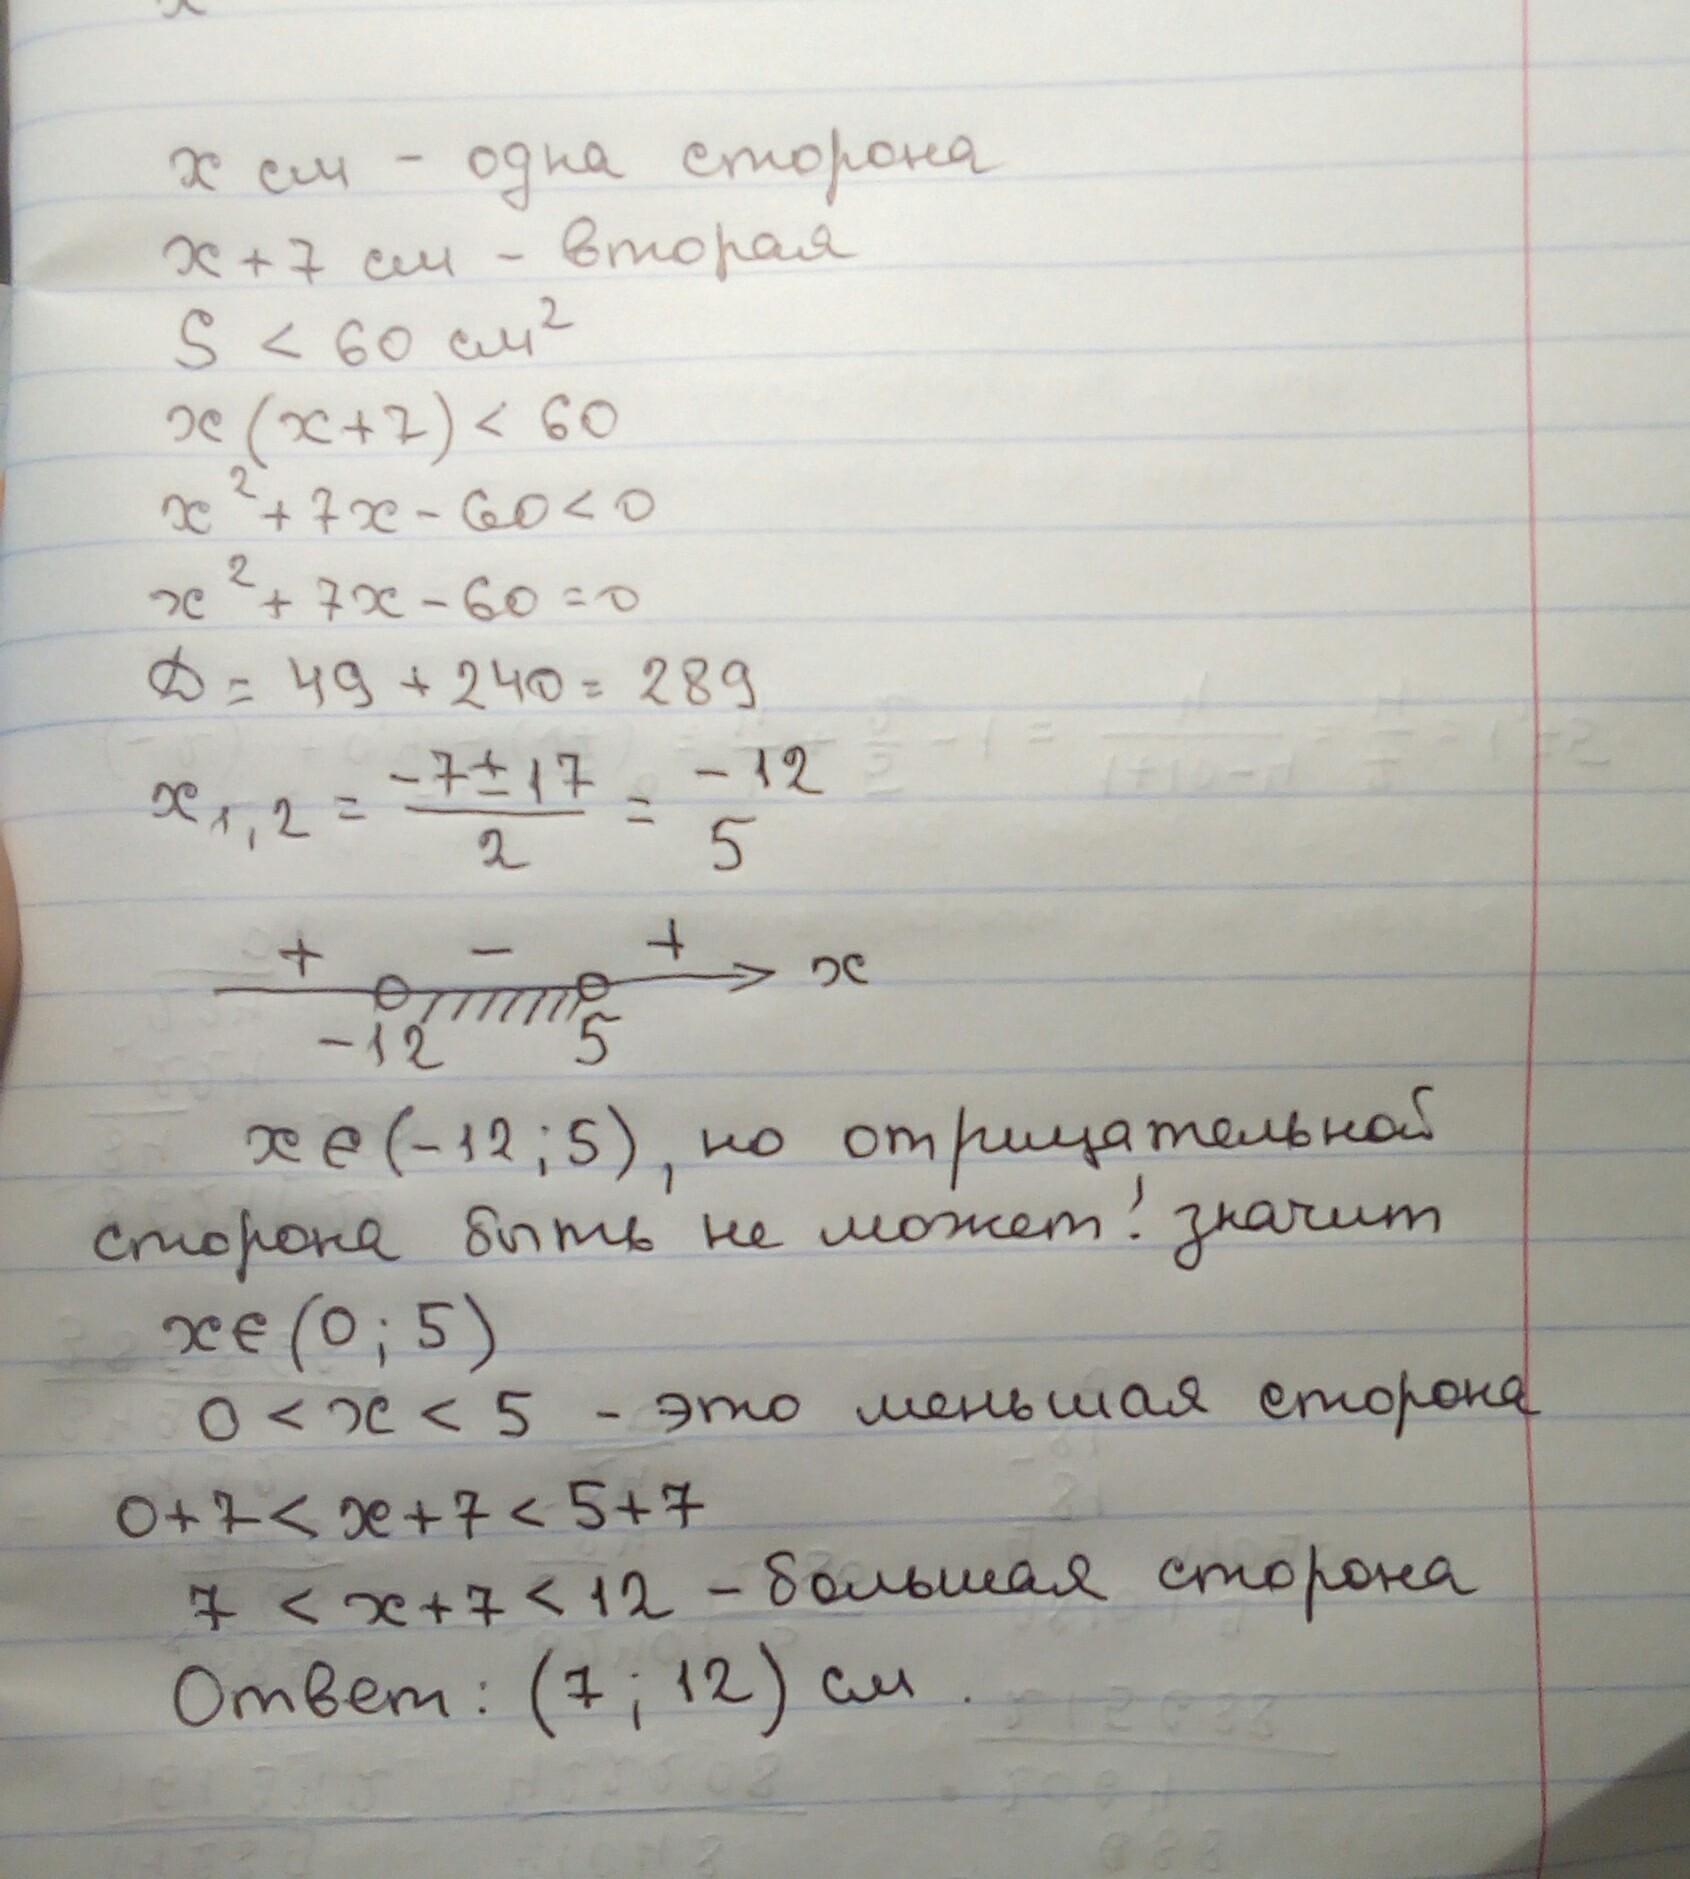 x см - одна сторона
x+7 см - вторая
S < 60 см²
x(x+7) < 60
x²+7x-60<0
x²+7x-60=0
D = 49+240 = 289
x₁,₂ = (-7±17)/2 = -12
5
+ - + x
-12 5
x∈(-12;5), но отрицательной
сторона быть не может! значит
x∈(0;5)
0<x<5 - это меньшая сторона
0+7<x+7<5+7
7<x+7<12 - большая сторона
Ответ: (7;12) см.